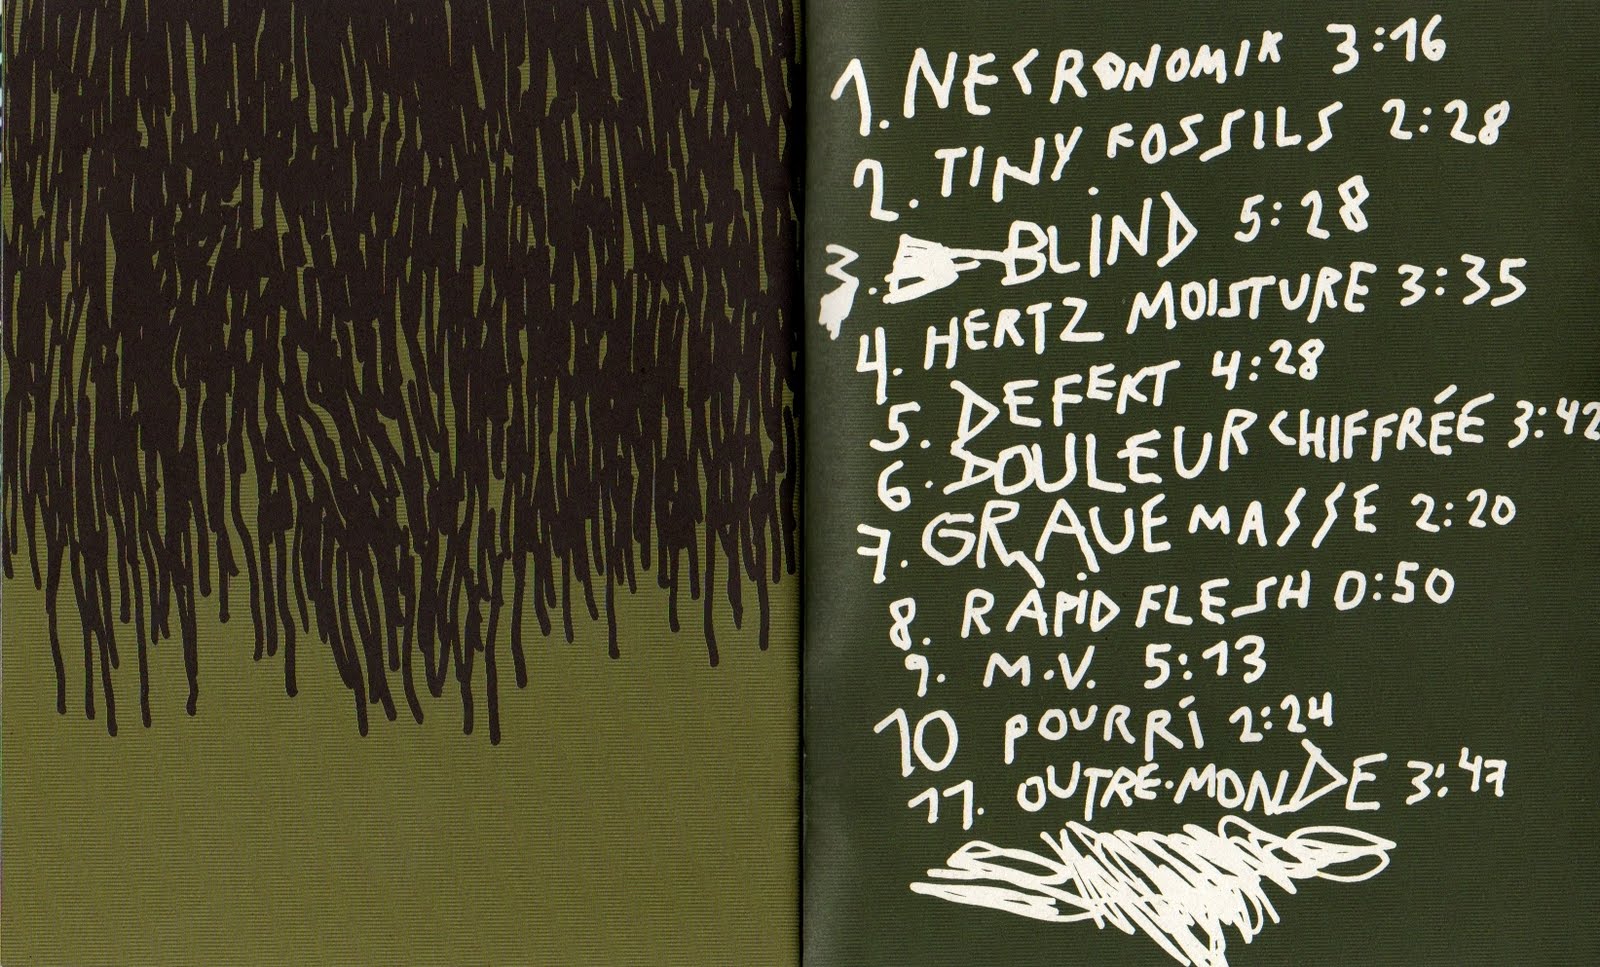 1. NECRONOMIK 3:16
2. TINY FOSSILS 2:28
3. BLIND 5:28
4. HERTZ MOISTURE 3:35
5. DEFEKT 4:28
6. DOULEUR CHIFFRÉE 3:42
7. GRAVE MASSE 2:20
8. RAPID FLESH 0:50
9. M.V. 5:13
10 POURRI 2:24
11. OUTRE-MONDE 3:47